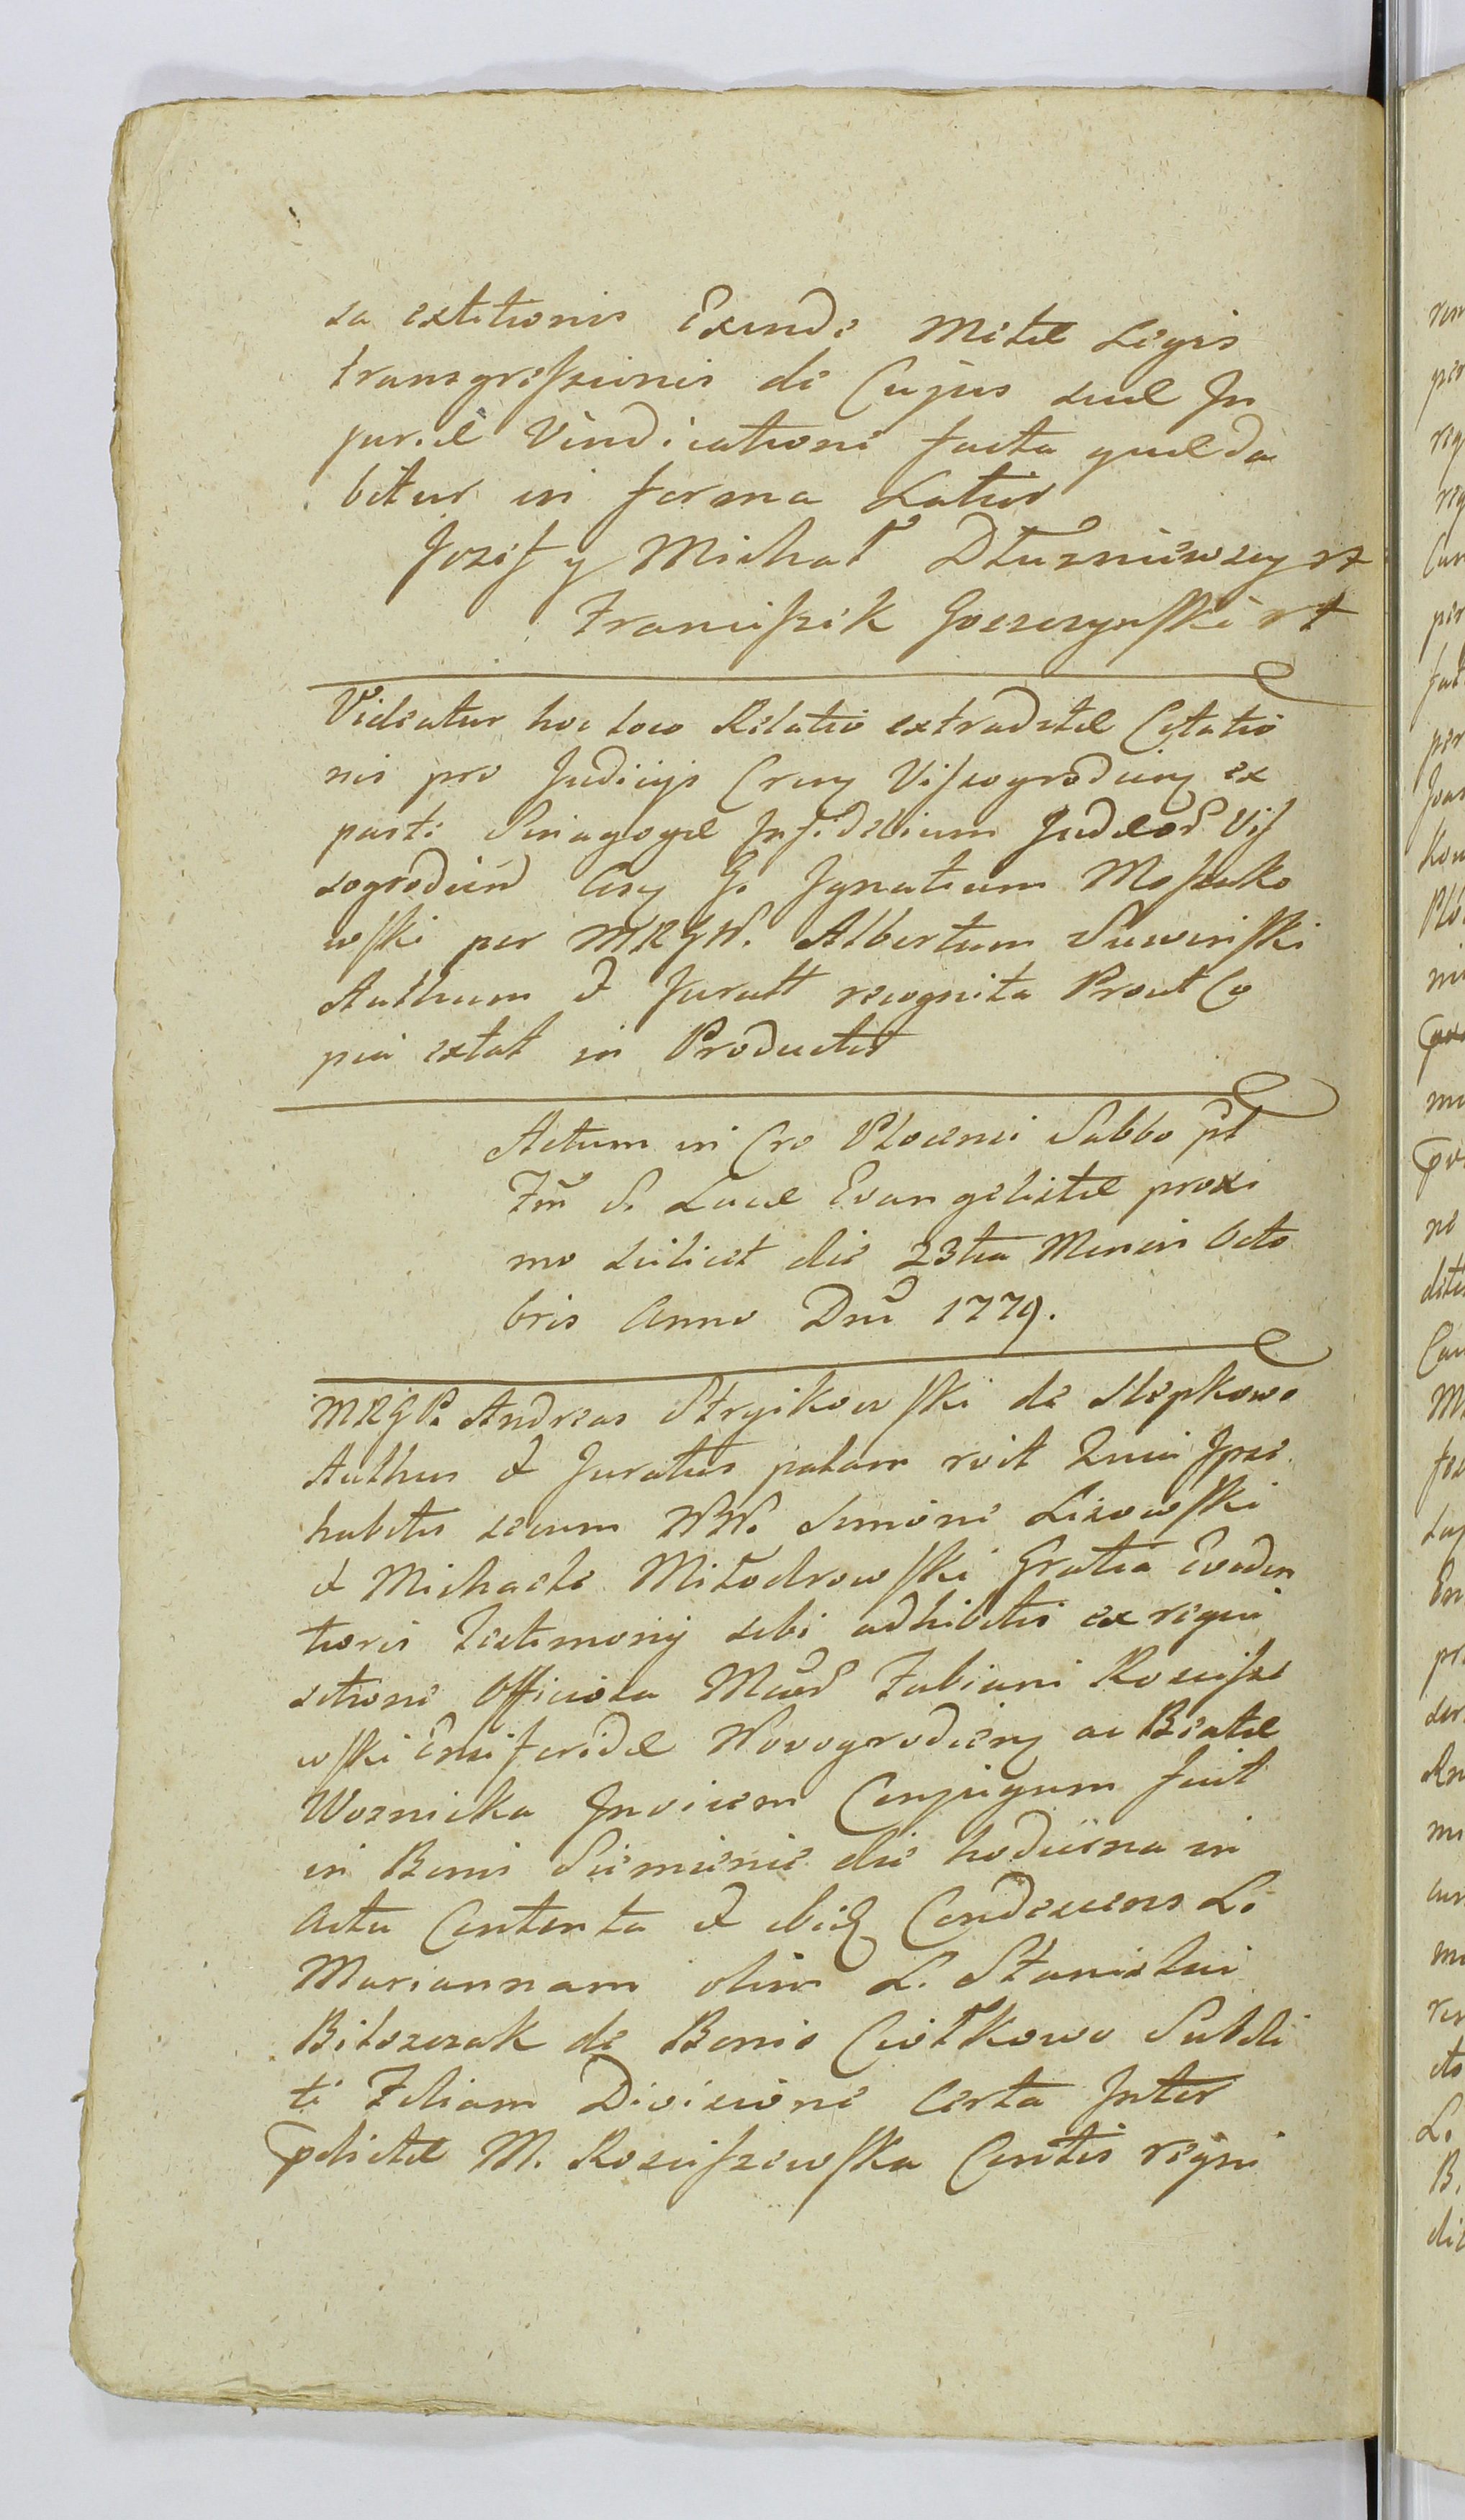 sa extitionis Exinde Metae Legis
transgressionis de Cujus suae In
juriae Vindicatione facta quaeda
bitur in forma Latior
Jozef y Michał Dłuzniewscy rt
Franciszek Goszczynski rt
Videatur hoc loco Relatio extraditae Citatio
nis pro Judicijs Crng Vissogrodieng ex
parte Sinagogae Infidelium Judeor Vis
sogrodien Cisg G. Ignatium Mossako
wski per MRGW. Albertum Suwinski
Authum & Juratt recognita Prout Co
pia extat in Productis
Actum in Cro Plocensi Sabbo pt
Fm S. Lucae Evangelistae proxi
mo scilicet die 23tia Mensis Octo
bris Anno Dni 1779.
MRGP. Andreas Stryikowski de Slepkowo
Authus & Juratus palam rvit Quia Ipse
habitis secum NN. Simone Lisowski
& Michaele Miłodrowski Gratia Eviden
tioris Testimonij sibi adhibitis ex requi
sitione Officiosa Mcor Fabiani Kosciszе
wski Ensiferidae Wovogrodieng ac Beatae
Woznicka Invicem Conjugum fuit
in Bonis Siemienie die hodierna in
Actu Contenta & ibiq Condescens L.
Mariannam olim L. Stanislai
Bitoszczak de Bonis Ciołkowo Subdi
ti Filiam Divisione Certa Inter
pdictae M. Kosciszewska Contis regni